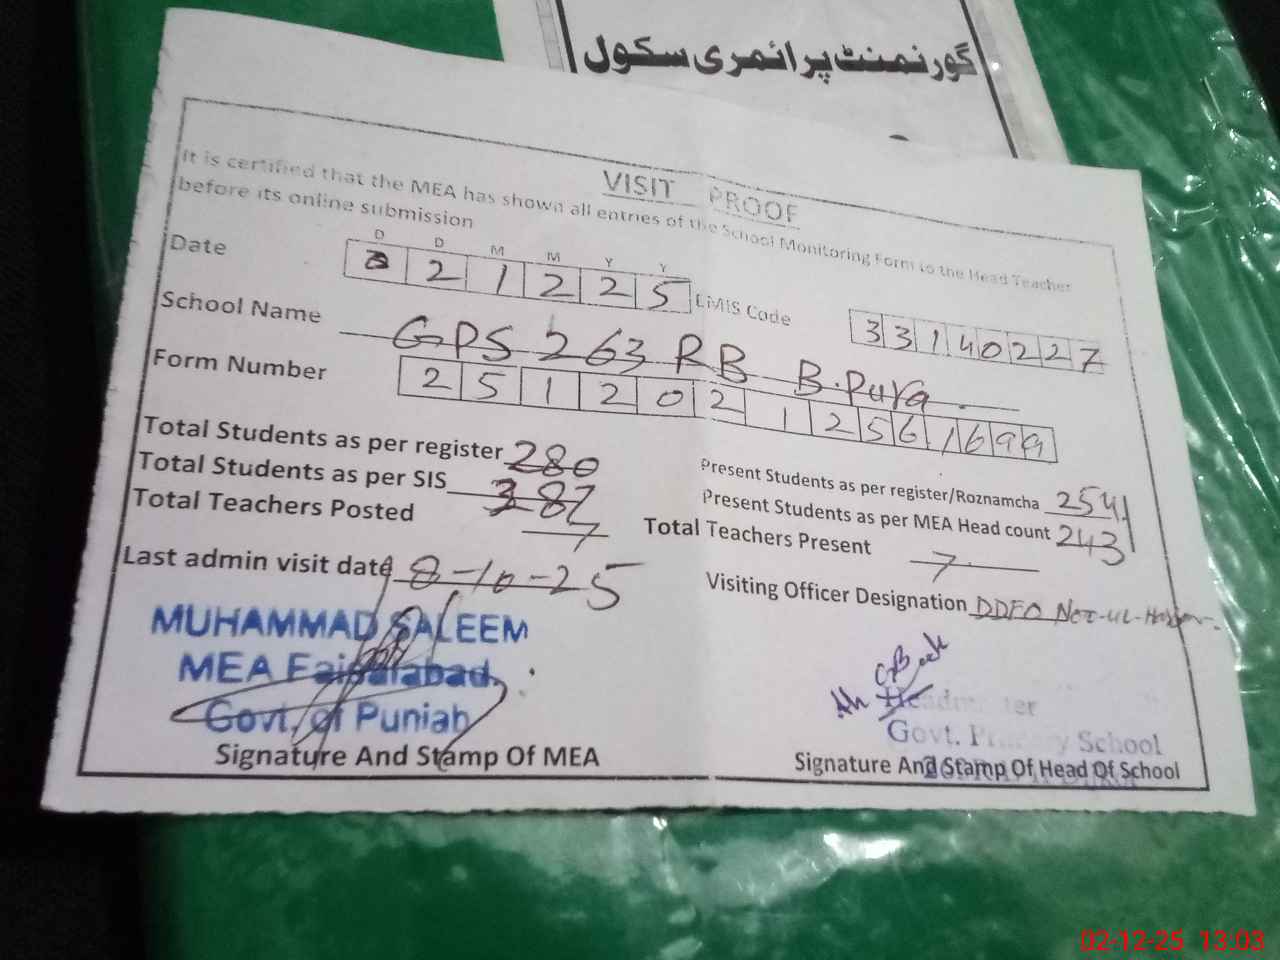 گورنمنٹ پرائمری سکول
VISIT PROOF
It is certified that the MEA has shown all entries of the School Monitoring Form to the Head Teacher
before its online submission
D D M M Y Y
Date 0 2 1 2 2 5 EMIS Code 3 3 1 4 0 2 2 7
School Name GPS 263 RB B.Pura.
Form Number 2 5 1 2 0 2 1 2 5 6 1 6 9 9
Total Students as per register 280 Present Students as per register/Roznamcha 254
Total Students as per SIS 287 Present Students as per MEA Head count 243
Total Teachers Posted 7 Total Teachers Present 7
Last admin visit date 8-10-25 Visiting Officer Designation DDEO
MUHAMMAD SALEEM
MEA Faisalabad,
Govt. of Punjab
Headmaster
Govt. Primary School
Signature And Stamp Of MEA Signature And Stamp Of Head Of School
02-12-25 13:03